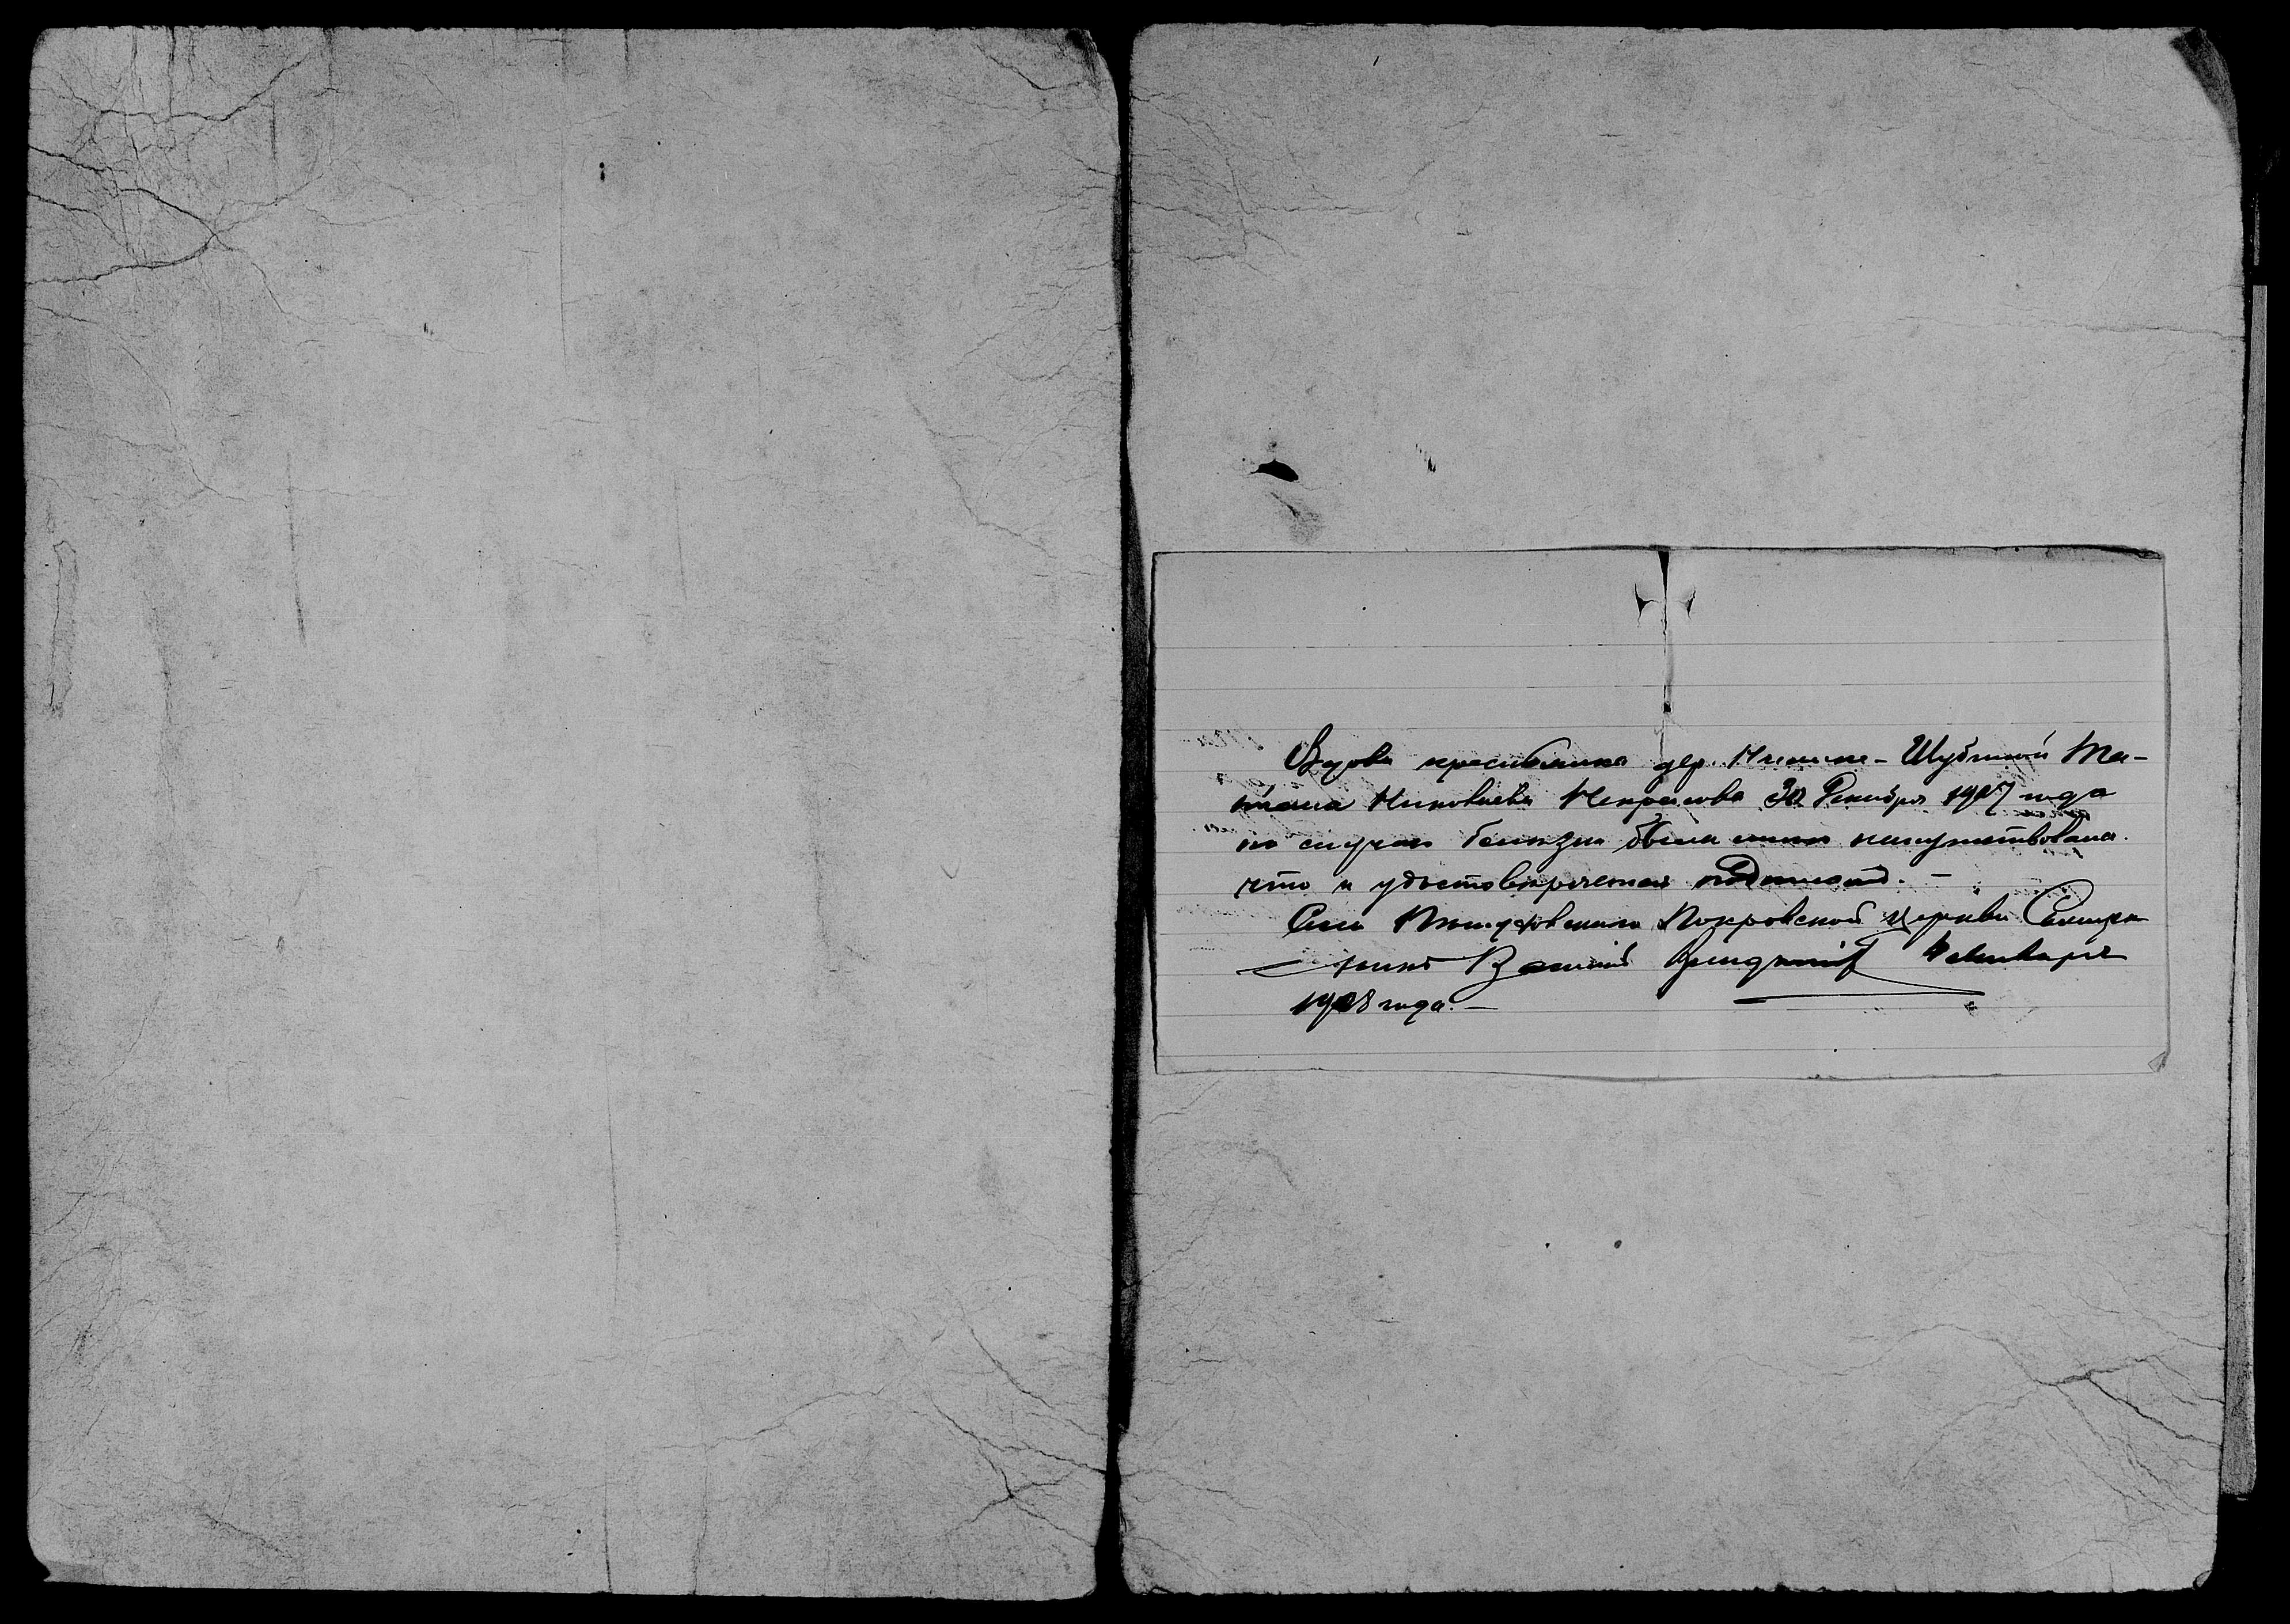 Вдова крестьянина дер. Нижне-Шубной Та-
тьяна Николаева Некрасова 30 Декабря 1907 года
по случаю болезни была мною напутствована.
что и удостоверяется подписью. –
Села Покровской церкви Священ-
никъ Василій Января
1908 года. –